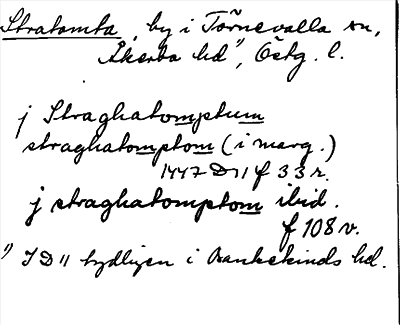 Stratomta, by i Törnevalla sn,
Åkerbo hd¹⁾, Östg. l.
j Straghatomptum
straghatomptom (i marg.)
1447 D 11 f 33 r.
j straghatomptom ibid.
f 108 v.
¹⁾ I D 11 tydligen i Bankekinds hd.